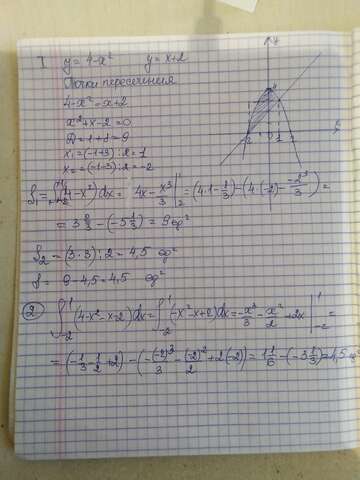 I y = 4-x² y = x+2
Точки пересечения
4-x² = x+2
x²+x-2=0
D=1+8=9
x₁=(-1+3):2=1
x₂=(-1-3):2=-2
S₁=∫₋₂¹(4-x²)dx = 4x-x³/3|₋₂¹=(4·1-1/3)-(4·(-2)-(-2³)/3)=
=3 2/3-(-5 1/3)=9 ед²
S₂=(3·3):2=4,5 ед²
S= 9-4,5=4,5 ед²
② ∫₋₂¹(4-x²-x-2)dx=∫₋₂¹(-x²-x+2)dx=-x³/3-x²/2+2x|₋₂¹=
=(-1/3-1/2+2)-(-(-2)³/3-(-2)²/2+2(-2))=1 1/6-(-3 1/3)=4,5 ед²